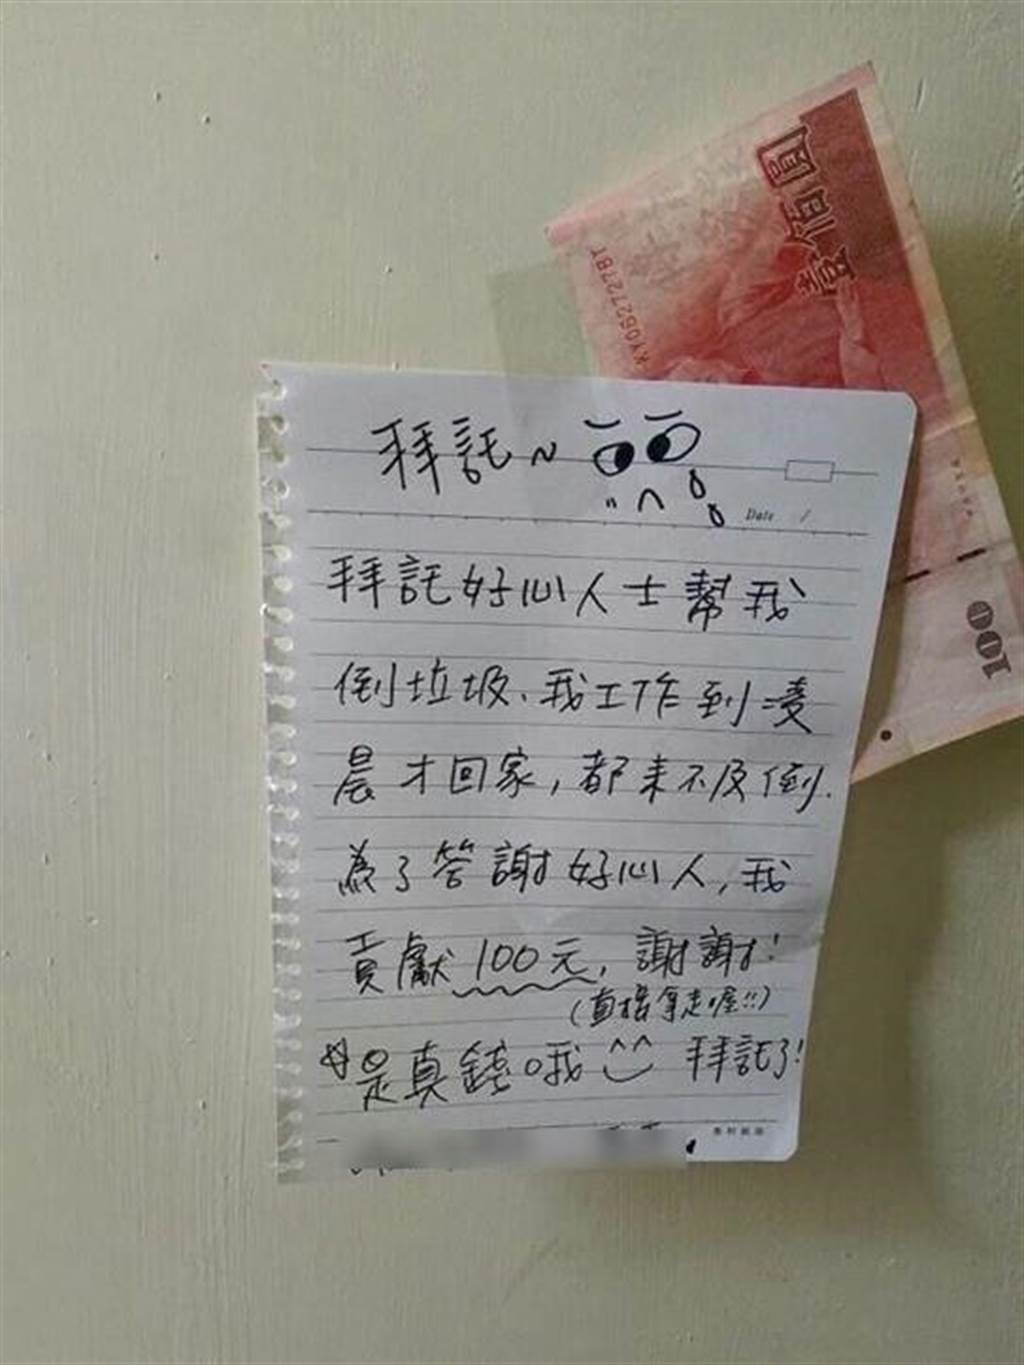 壹佰圓
KY062727BY
100
拜託~
Date /
拜託好心人士幫我
倒垃圾、我工作到凌
晨才回家，都來不及倒.
為了答謝好心人，我
貢獻100元，謝謝！
(直接拿走喔!!)
是真錢哦^^ 拜託了!